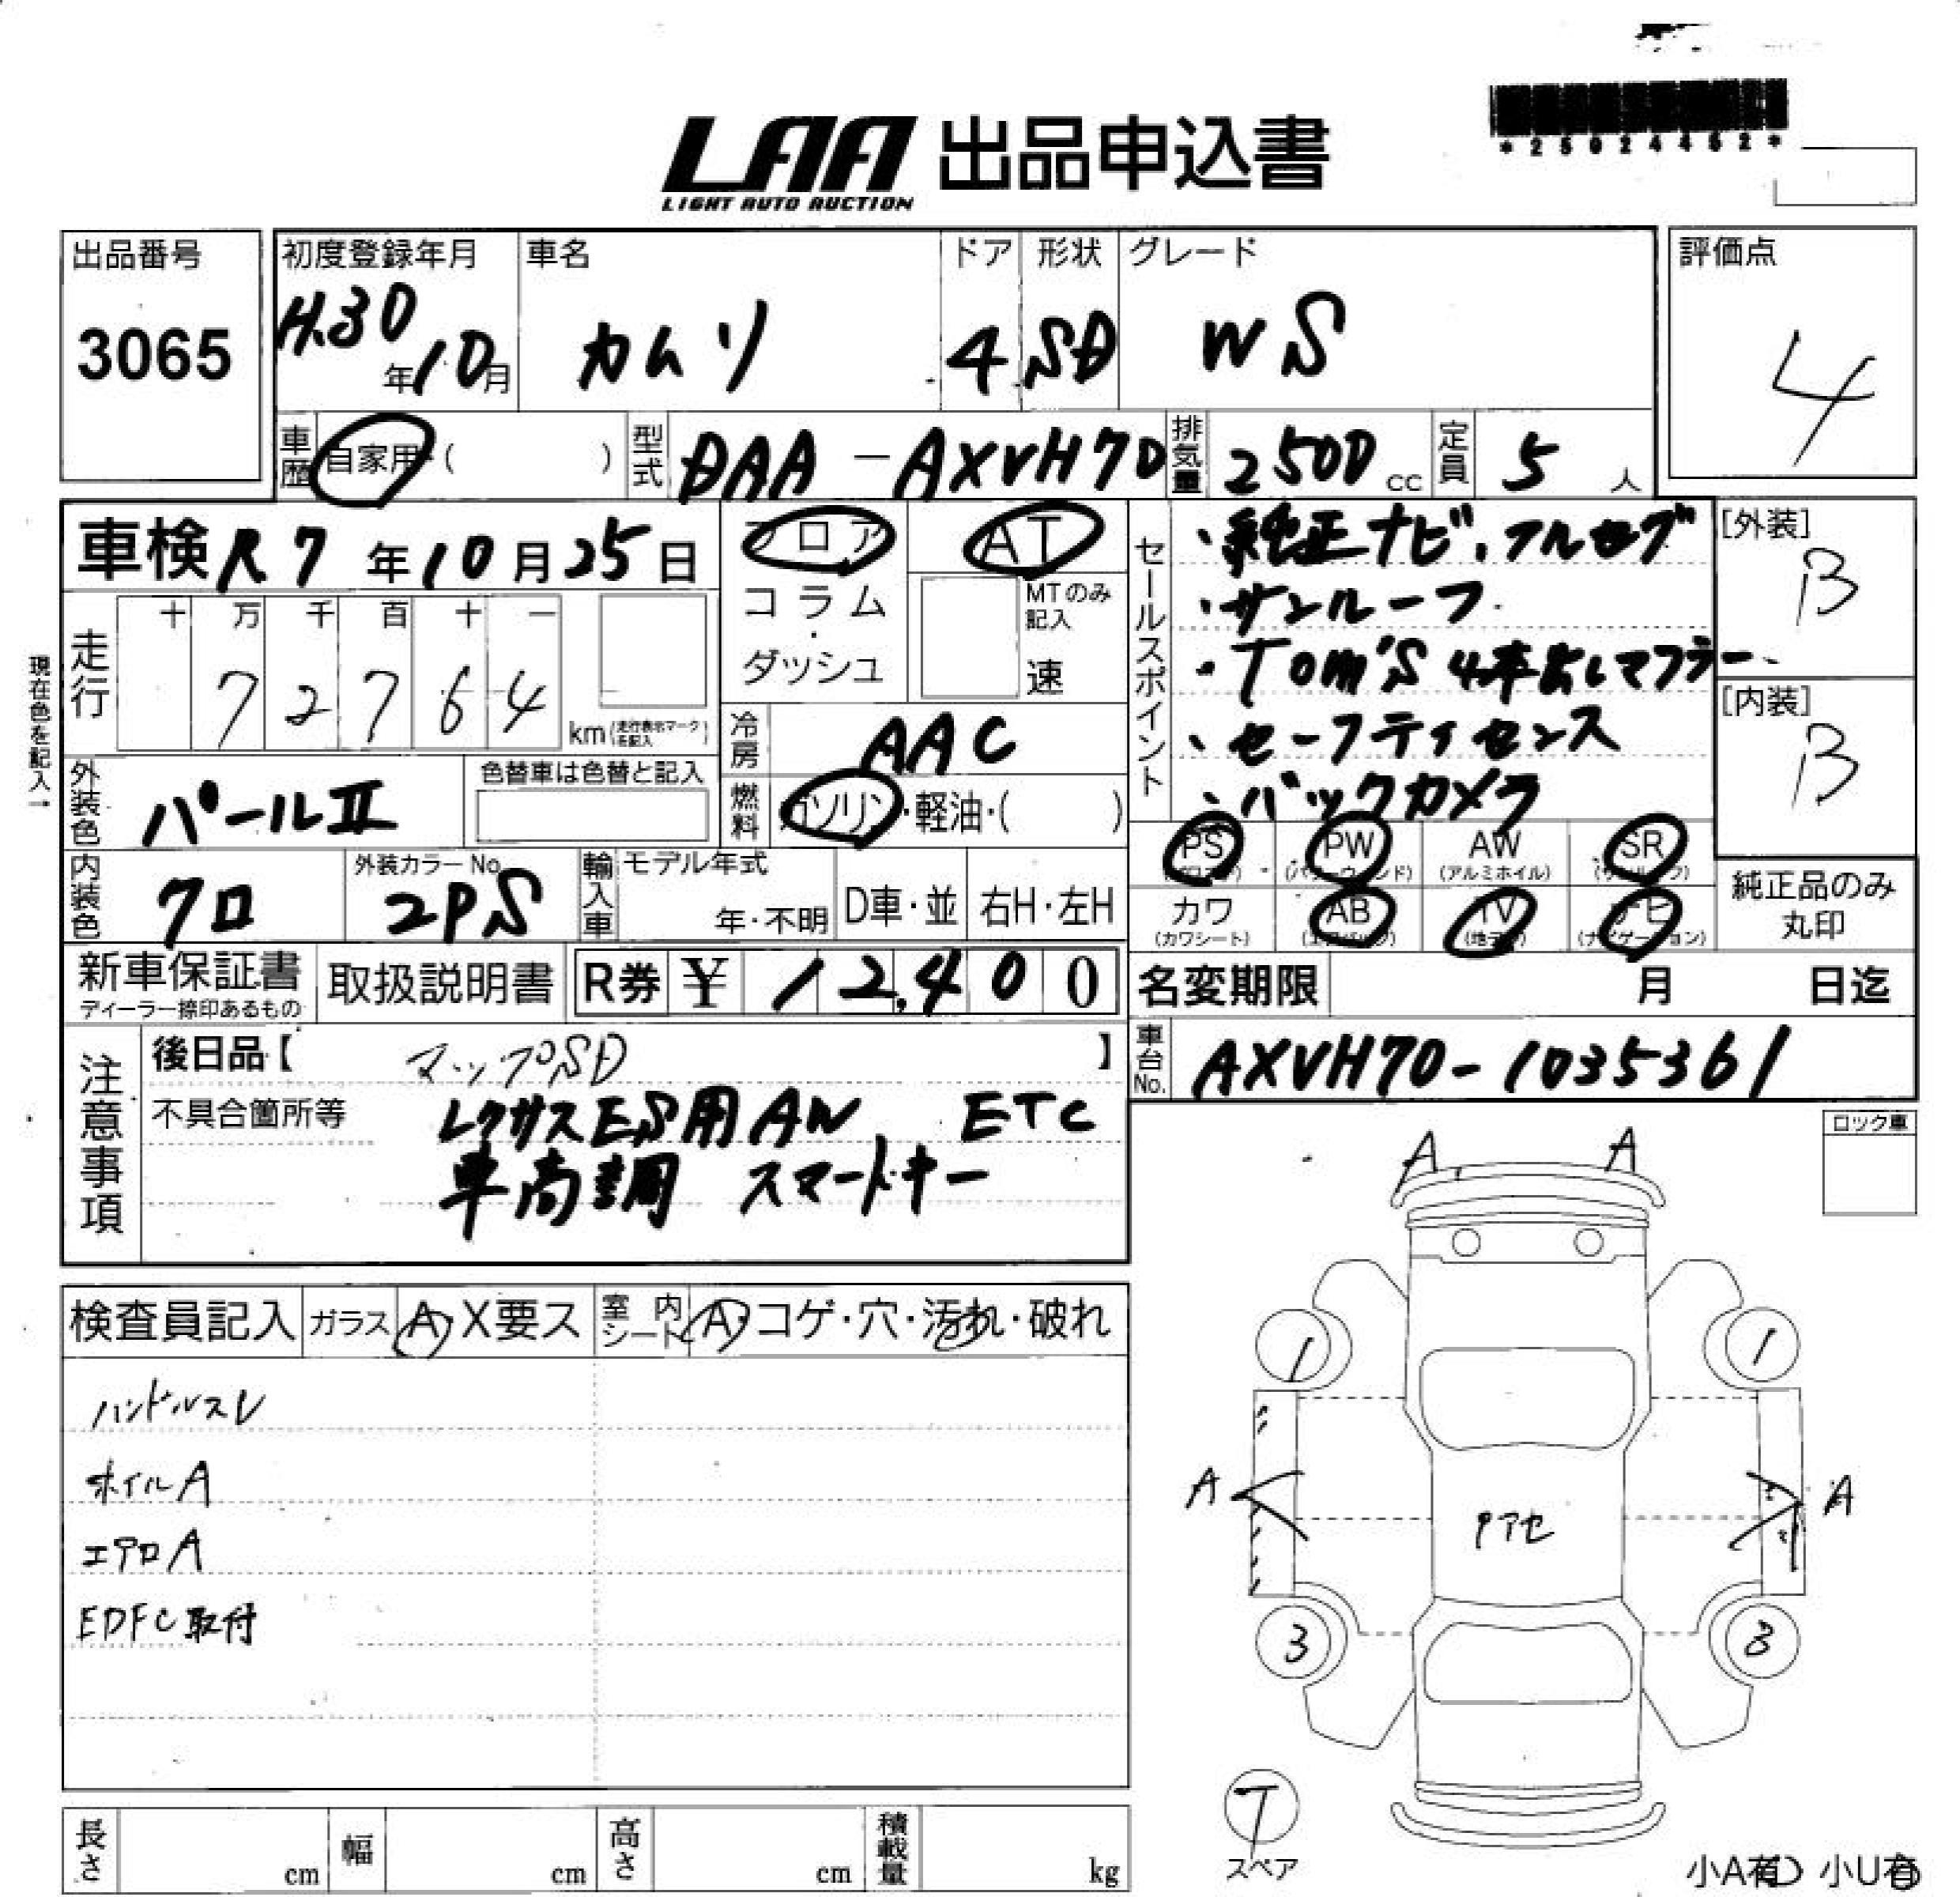 LAA 出品申込書
LIGHT AUTO AUCTION
*25024452*
出品番号
3065
初度登録年月
H.30年10月
車名
カムリ
ドア
4
形状
SD
グレード
WS
評価点
4
車歴 自家用・( )
型式 DAA-AXVH70
排気量 2500 cc
定員 5 人
車検 R7年10月25日
フロア
コラム・ダッシュ
AT
MTのみ記入
速
セールスポイント
・純正ナビ、フルセグ
・サンルーフ
・Tom'S 4本出しマフラー
・セーフティセンス
・バックカメラ
[外装]
B
[内装]
B
現在色を記入→
走行
十 万 千 百 十 一
7 2 7 6 4
km(走行表示マークを記入)
冷房 AAC
外装色 パールII
色替車は色替と記入
燃料 ガソリン・軽油・( )
PS (パワステ)
PW (パワーウィンド)
AW (アルミホイル)
SR (サンルーフ)
内装色 クロ
外装カラーNo.
2PS
輸入車
モデル年式
年・不明
D車・並
右H・左H
カワ (カワシート)
AB (エアバッグ)
TV (地デジ)
ナビ (ナビゲーション)
純正品のみ丸印
新車保証書
ディーラー捺印あるもの
取扱説明書
R券 ¥ 12,400
名変期限 月 日迄
注意事項
後日品【 マップSD 】
車台No. AXVH70-1035361
不具合箇所等
レクサスES用AW ETC
車高調 スマートキー
ロック車
A A
検査員記入
ガラス A・X要ス
室内シート A・コゲ・穴・汚れ・破れ
ハンドルスレ
ホイルA
エアロA
EDFC取付
1 1
A A
クアセ
3 3
T
スペア
長さ cm
幅 cm
高さ cm
積載量 kg
小A有 小U有